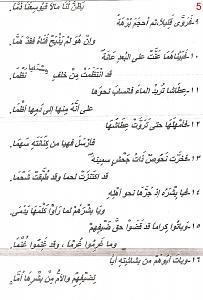 5
يظن لنا مالا فيوسعنا ذما.
٩-فروى قليلا ثم أحجم برهة
وإن هو لم يذبح فتاه فقد هما.
١٠-فبينا هما عنت على البعد عانة
قد انتظمت من خلف مسحلها نظما.
١١-عطاشا تريد الماء فانساب نحوها
على أنه منها إلى دمها أظما.
١٢-فأمهلها حتى تروت عطاشها
فأرسل فيها من كنانته سهما.
١٣-فخرت نحوص ذات جحش سمينة
قد اكتنزت لحما وقد طبقت شحما.
١٤-فيا بشره إذ جرها نحو أهله
ويا بشرهم لما رأوا كلمها يدمى.
١٥-وباتوا كراما قد قضوا حق ضيفهم
وما غرموا غرما ، وقد غنموا غنما.
١٦-وبات أبوهم من بشاشته أبا
لضيفهم والأم من بشرها أما.